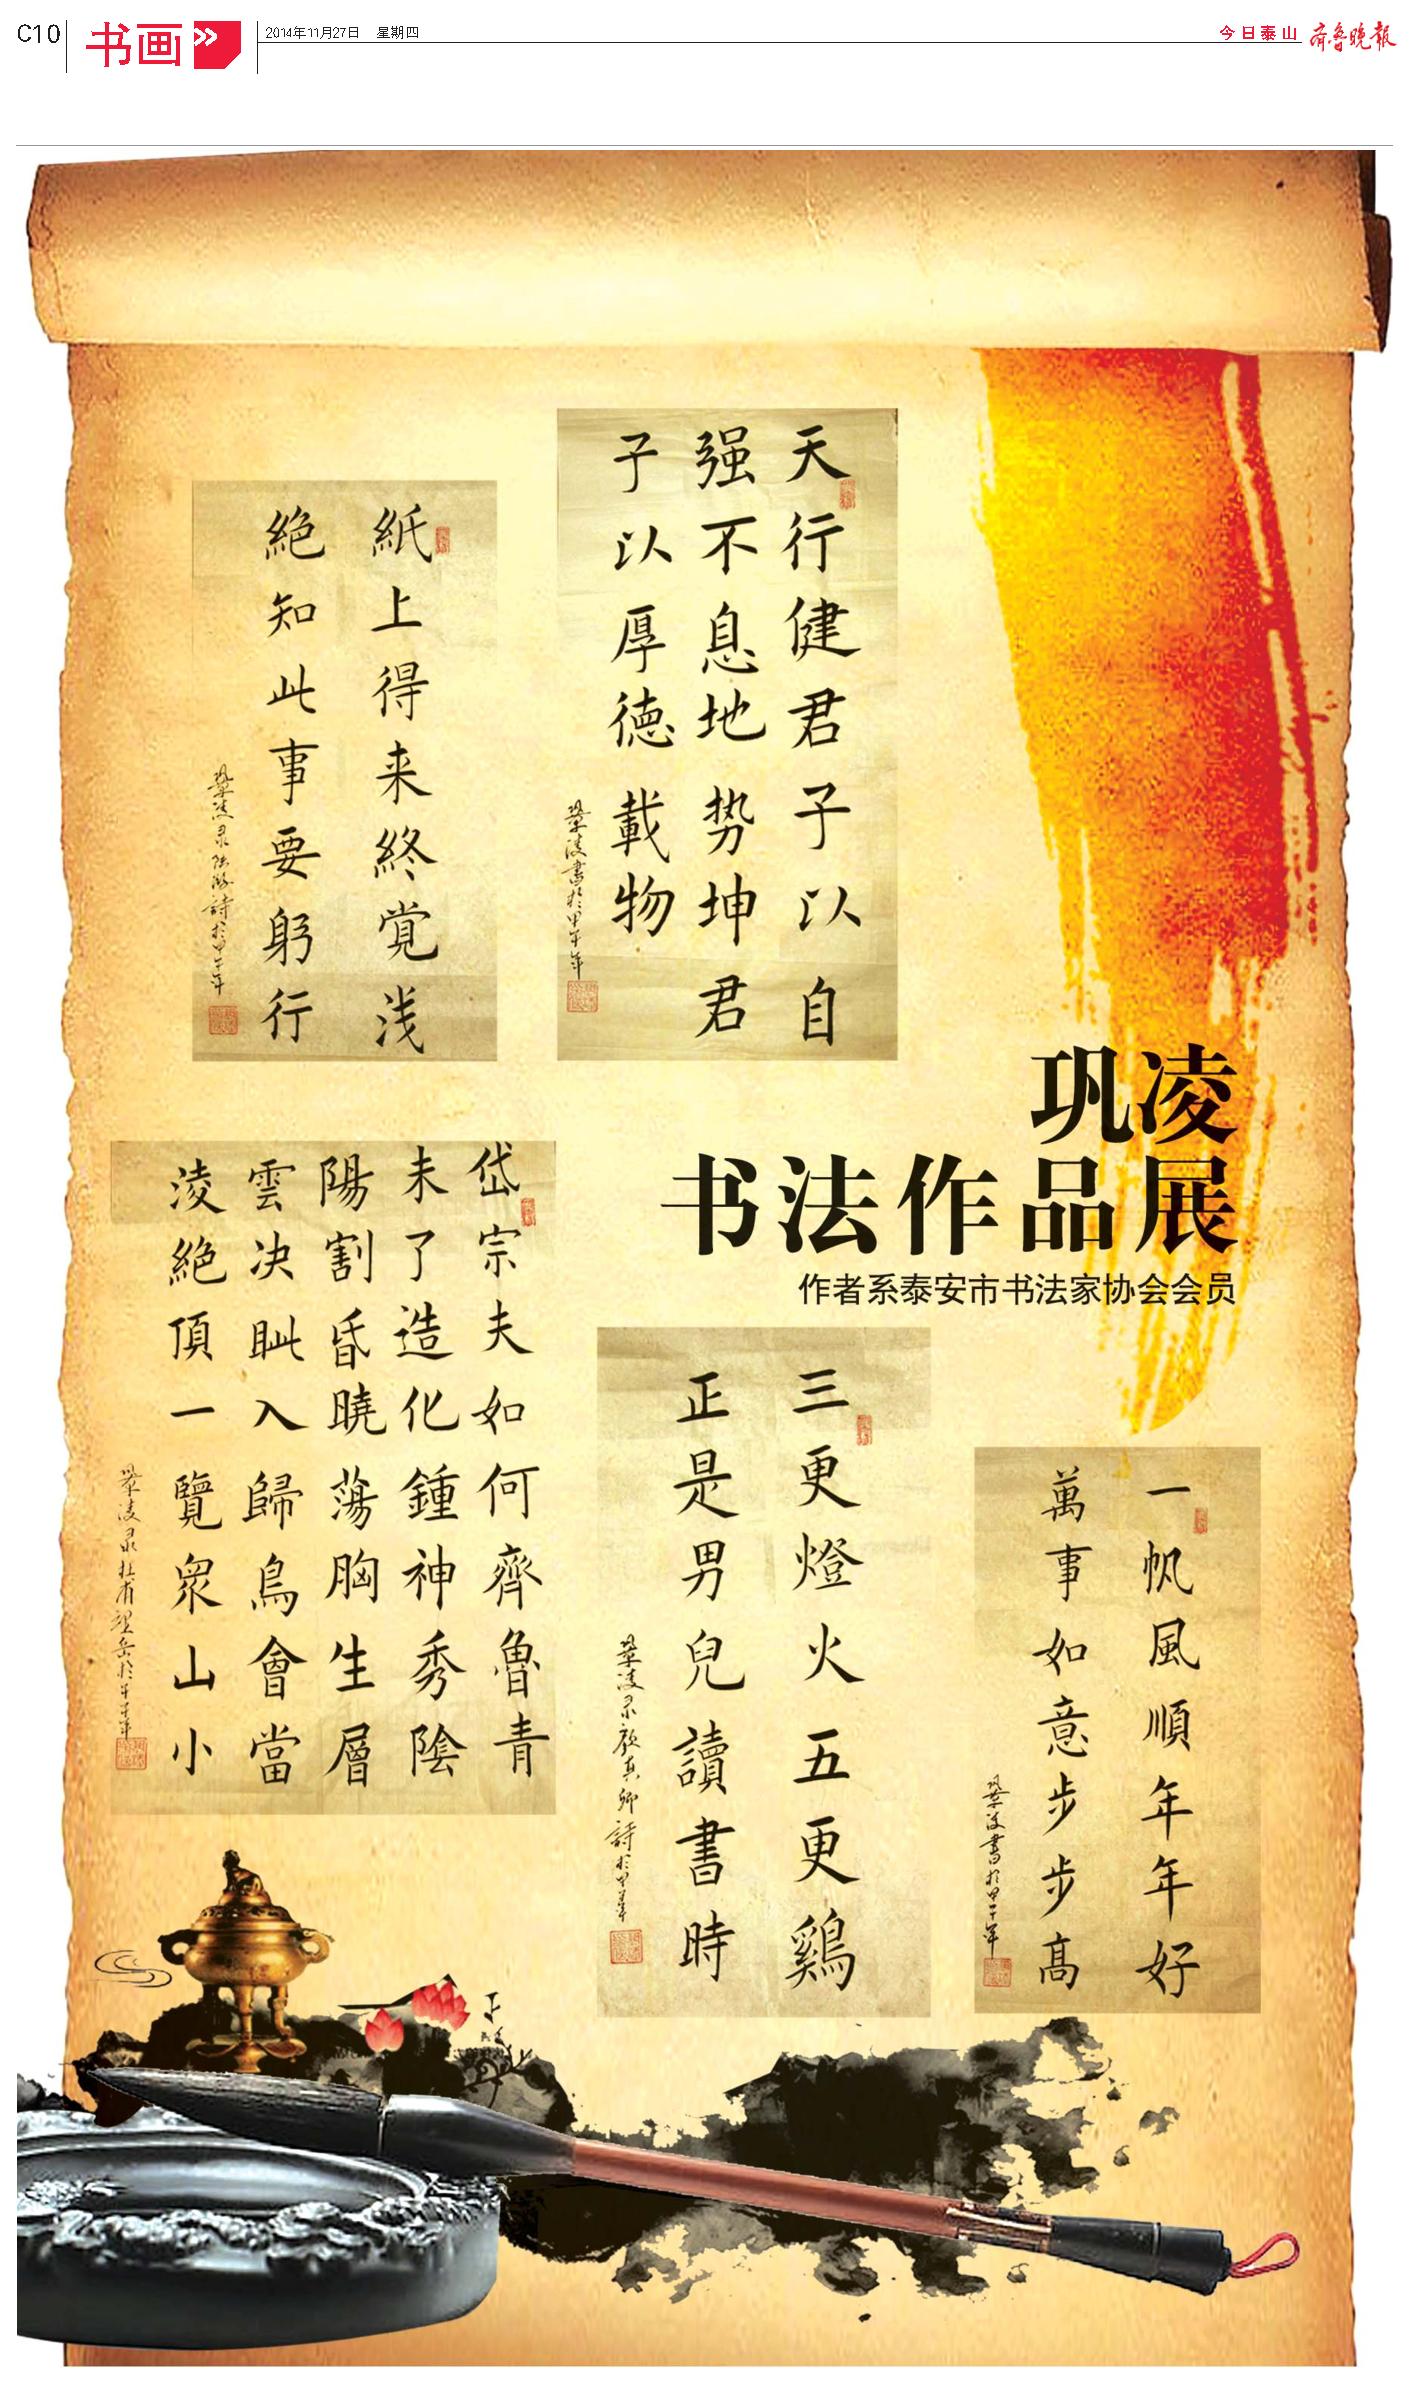 C10
书画
2014年11月27日 星期四
今日泰山
齐鲁晚报
天行健君子以自
强不息地势坤君
子以厚德載物
鞏淩書於甲午年
紙上得来終覚浅
絶知此事要躬行
鞏淩录陆游詩於甲午年
巩凌
书法作品展
作者系泰安市书法家协会会员
岱宗夫如何齊魯青
未了造化鍾神秀陰
陽割昏曉蕩胸生層
雲决眦入歸鳥會當
淩絶頂一覽衆山小
三更燈火五更鷄
正是男兒讀書時
鞏淩录顏真卿詩於甲午年
一帆風順年年好
萬事如意步步高
鞏淩書於甲午年